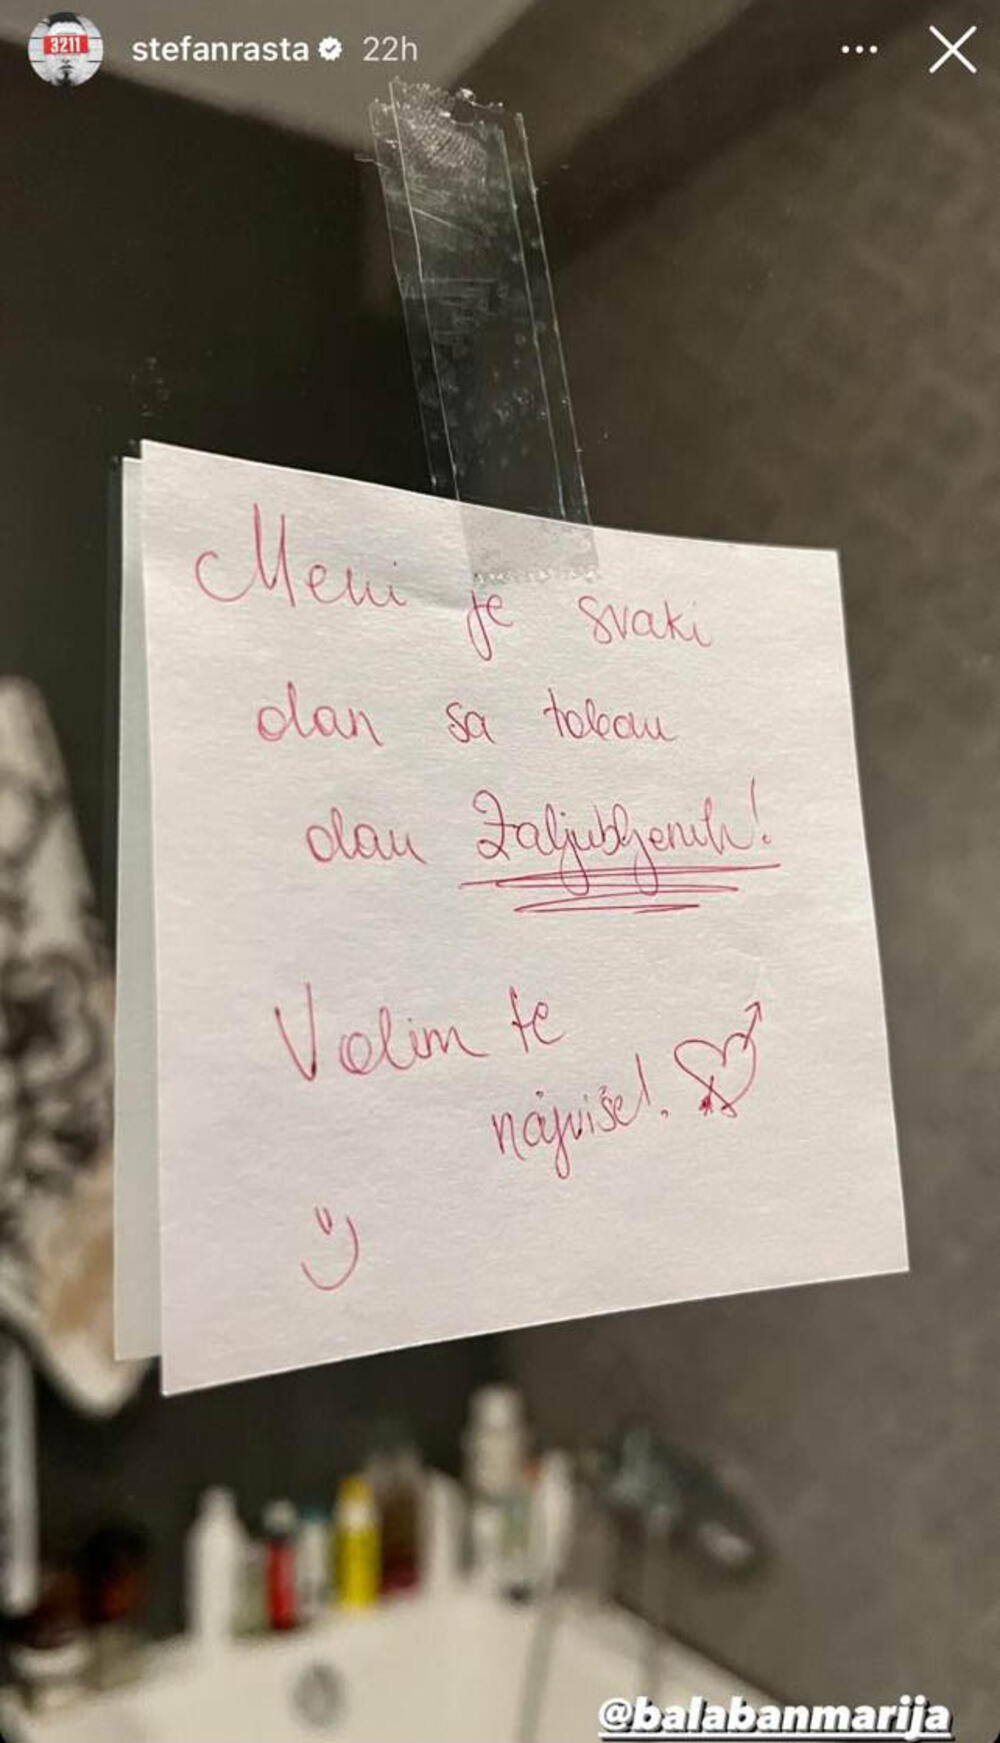 3211
stefanrasta 22h
Meni je svaki
dan sa tobom
dan Zaljubljenih!
Volim te
najviše!
@balabanmarija